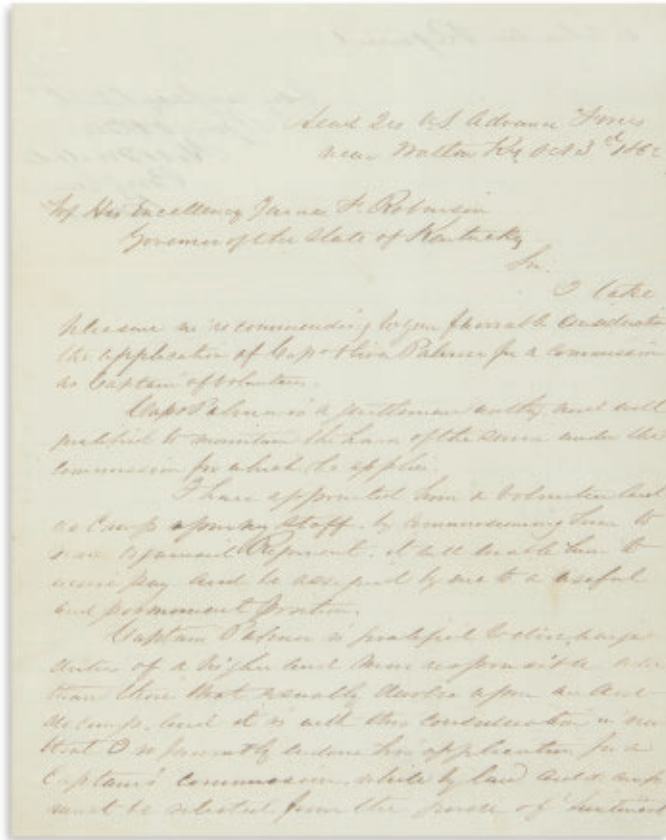 Head Qrs U.S. Advance Forces
near Walton Ky Oct 3rd 186
To His Excellency James F. Robinson
Governor of the State of Kentucky
Sir.
I take
pleasure in recommending to your favorable consideration
the application of Capt Palmer for a commission
as Captain of Volunteers.
Capt Palmer is a gentleman worthy and well
qualified to maintain the honor of the service under the
commission for which he applies.
I have appointed him a Volunteer Aid
de Camp upon my Staff. by commissioning him to
Regiment. it will enable him to
receive pay and be assigned by me to a useful
and permanent position.
Captain Palmer is qualified to discharge
duties of a higher and more responsible
than those that usually devolve upon an Aid
de camp. and it is with this consideration in view
that I so earnestly endorse his application for a
Captain's commission. while by law aid de camps
must be selected from the grade of Lieutenant